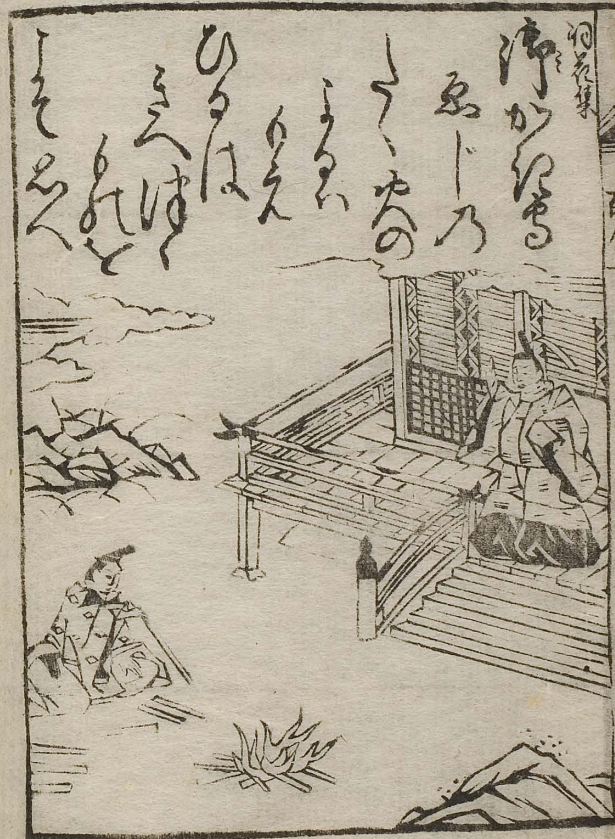 詞花集
御かき守
ゑじの
たく火の
よるハ
もえ
ひるは
きへつゝ
ものを
こそ思へ